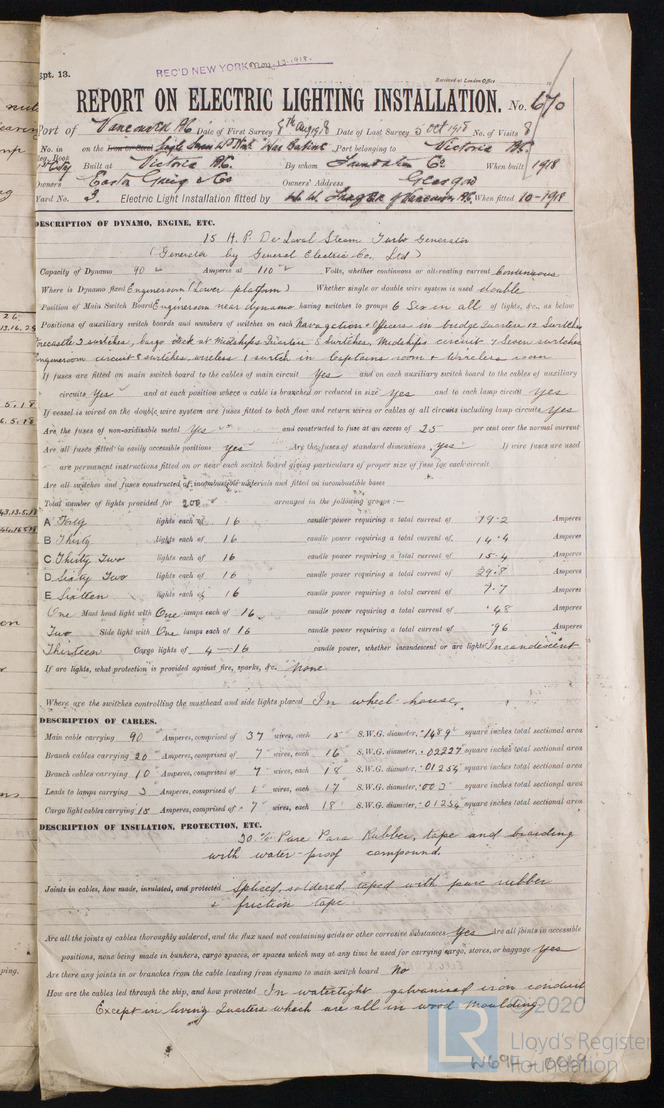 Rpt. 13.
REC'D NEW YORK Nov. 13. 1918.
Received at London Office
REPORT ON ELECTRIC LIGHTING INSTALLATION. No. 670
Port of Vancouver B.C. Date of First Survey 8th Aug 1918 Date of Last Survey 5 Oct 1918 No. of Visits 8
No. in Reg. Book on the Iron or Steel Single Screw Wd Stmr "War Cabine" Port belonging to Victoria B.C.
Built at Victoria B.C. By whom Foundation Co When built 1918
Owners Easton Greig & Co Owners' Address Glasgow
Yard No. 3. Electric Light Installation fitted by of Vancouver B.C. When fitted 10-1918
DESCRIPTION OF DYNAMO, ENGINE, ETC.
15 H.P. De Laval Steam Turbo Generator
(Generator by General Electric Co. Ltd)
Capacity of Dynamo 90 Amperes at 110 Volts, whether continuous or alternating current Continuous
Where is Dynamo fixed Engineroom (Lower platform) Whether single or double wire system is used double
Position of Main Switch Board Engineroom near dynamo having switches to groups 6 Six in all of lights, &c., as below
Positions of auxiliary switch boards and numbers of switches on each Navagation & Officers in bridge Quarters 12 Switches
Forecastle 3 switches, Cargo deck at Midships Quarters 8 switches, Midships circuit 7 Seven switches
Engineroom circuit 8 switches, wireless 1 switch in Captains room & Wireless room
If fuses are fitted on main switch board to the cables of main circuit Yes and on each auxiliary switch board to the cables of auxiliary
circuits Yes and at each position where a cable is branched or reduced in size Yes and to each lamp circuit Yes
If vessel is wired on the double wire system are fuses fitted to both flow and return wires or cables of all circuits including lamp circuits Yes
Are the fuses of non-oxidisable metal Yes and constructed to fuse at an excess of 25 per cent over the normal current
Are all fuses fitted in easily accessible positions Yes Are the fuses of standard dimensions Yes If wire fuses are used
are permanent instructions fitted on or near each switch board giving particulars of proper size of fuse for each circuit
Are all switches and fuses constructed of incombustible materials and fitted on incombustible bases
Total number of lights provided for 200 arranged in the following groups :—
A Forty lights each of 16 candle-power requiring a total current of 19.2 Amperes
B Thirty lights each of 16 candle power requiring a total current of 14.4 Amperes
C Thirty Two lights each of 16 candle power requiring a total current of 15.4 Amperes
D Sixty Two lights each of 16 candle power requiring a total current of 29.8 Amperes
E Sixteen lights each of 16 candle power requiring a total current of 7.7 Amperes
One Mast head light with One lamps each of 16 candle power requiring a total current of .48 Amperes
Two Side light with One lamps each of 16 candle power requiring a total current of .96 Amperes
Thirteen Cargo lights of 4 — 16 candle power, whether incandescent or arc lights Incandescent
If arc lights, what protection is provided against fire, sparks, &c. None
Where are the switches controlling the masthead and side lights placed In wheel-house.
DESCRIPTION OF CABLES.
Main cable carrying 90 Amperes, comprised of 37 wires, each 15 S.W.G. diameter, .1489 square inches total sectional area
Branch cables carrying 20 Amperes, comprised of 7 wires, each 16 S.W.G. diameter, .02227 square inches total sectional area
Branch cables carrying 10 Amperes, comprised of 7 wires, each 18 S.W.G. diameter, .01254 square inches total sectional area
Leads to lamps carrying 3 Amperes, comprised of 1 wires, each 17 S.W.G. diameter, .003 square inches total sectional area
Cargo light cables carrying 15 Amperes, comprised of 7 wires, each 18 S.W.G. diameter, .01254 square inches total sectional area
DESCRIPTION OF INSULATION, PROTECTION, ETC.
30 % Pure Para Rubber, tape and braiding
with water-proof compound.
Joints in cables, how made, insulated, and protected Spliced, soldered, taped with pure rubber
& friction tape
Are all the joints of cables thoroughly soldered, and the flux used not containing acids or other corrosive substances Yes Are all joints in accessible
positions, none being made in bunkers, cargo spaces, or spaces which may at any time be used for carrying cargo, stores, or baggage Yes
Are there any joints in or branches from the cable leading from dynamo to main switch board No
How are the cables led through the ship, and how protected In watertight galvanised iron conduit
Except in living Quarters which are all in wood moulding
© 2020
LR
Lloyd's Register
Foundation
W691-0069